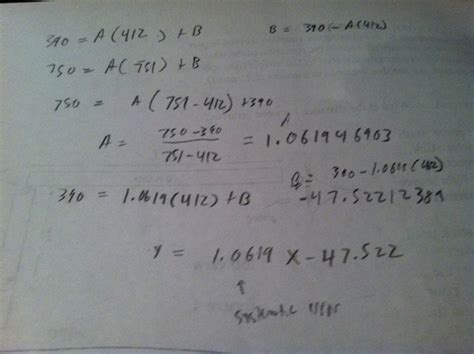 390 = A(412) + B B = 390 - A(412)
750 = A(751) + B
750 = A(751-412) + 390
A = 750-390 / 751-412 = 1.061946903
390 = 1.0619(412) + B B = 390 - 1.0619(412)
-47.52212389
Y = 1.0619 X - 47.522
↑
systematic error